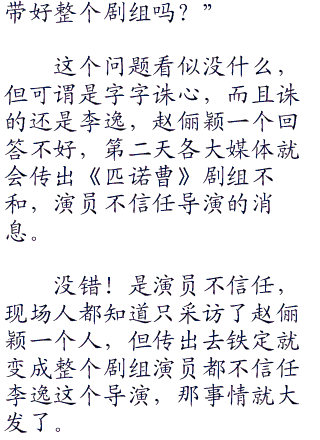 带好整个剧组吗？”
这个问题看似没什么，
但可谓是字字诛心，而且诛
的还是李逸，赵俪颖一个回
答不好，第二天各大媒体就
会传出《匹诺曹》剧组不
和，演员不信任导演的消
息。
没错！是演员不信任，
现场人都知道只采访了赵俪
颖一个人，但传出去铁定就
变成整个剧组演员都不信任
李逸这个导演，那事情就大
发了。